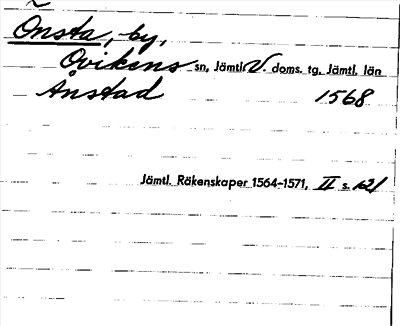 Önsta, by,
Ovikens sn, Jämtl. V. doms. tg. Jämtl. län
Ånstad 1568
Jämtl. Räkenskaper 1564-1571, II s. 121